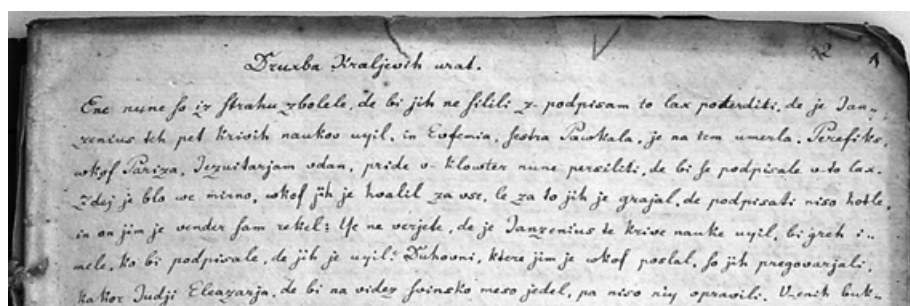 2 1
Druxba Kraljevih vrat.
Ene nune so iz strahu zbolele, de bi jih ne silili z- podpisam to lax poterditi, de je Jan-
zenius teh pet krivih naukov uyil, in Eufemia, sestra Paskala, je na tem umerla. Perefiks,
wkof Pariza, Jezuitarjam vdan, pride v- klowter nune persiliti, de bi se podpisale v-to lax.
Zdej je blo we mirno, wkof jih je hvalil za vse, le za to jih je grajal, de podpisati niso hotle,
in on jim je vender sam rekel: Ye ne verjete, de je Janzenius te krive nauke uyil, bi greh i-
mele, ko bi podpisale, de jih je uyil. Duhovni, ktere jim je wkof poslal, so jih pregovarjali,
kakor Judji Eleazarja, de bi na videz svinsko meso jedel, pa niso niy opravili. V-enih buk-